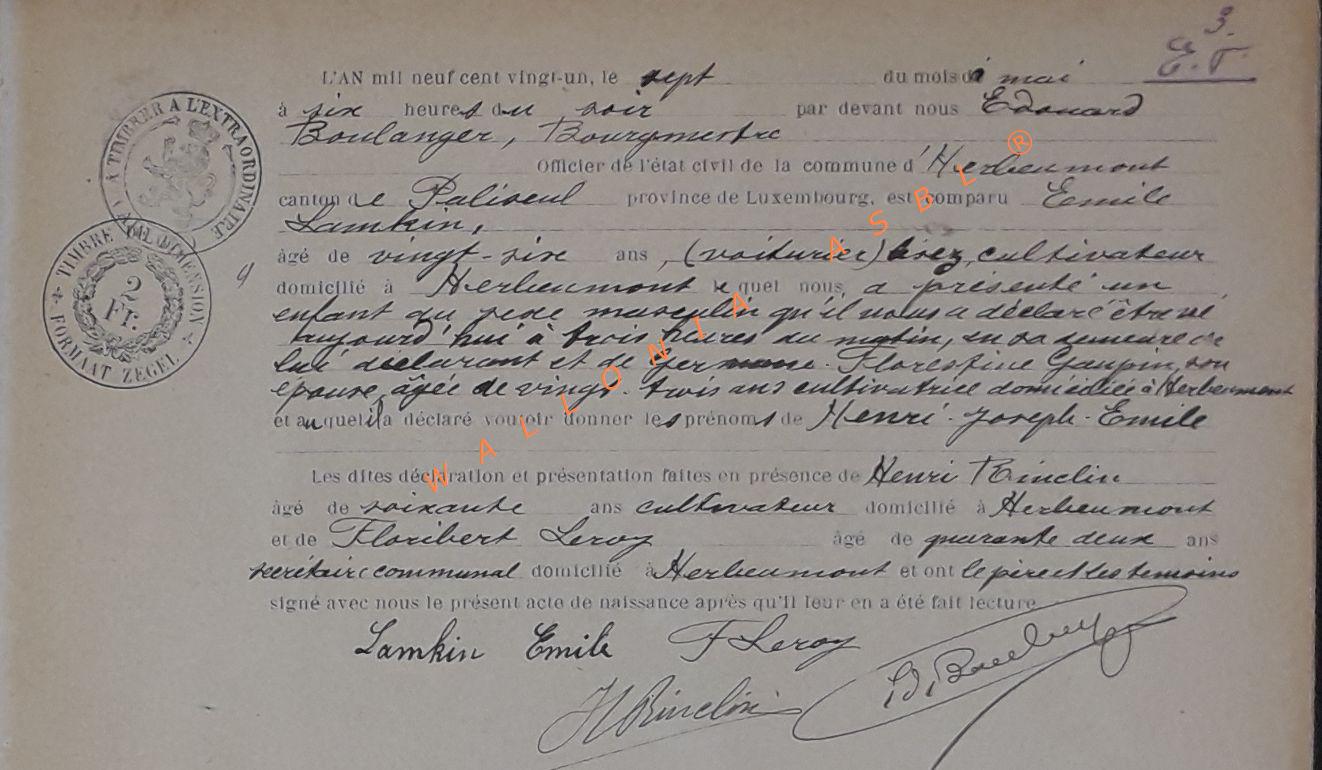 3.
E.T.
L'AN mil neuf cent vingt-un, le sept du mois de mai
à six heures du soir par devant nous Edouard
Boulanger, Bourgmestre
Officier de l'état civil de la commune d'Herbeumont
canton de Paliseul province de Luxembourg, est comparu Emile
Lamkin,
âgé de vingt-six ans, (voiturier) cultivateur
domicilié à Herbeumont lequel nous a présenté un
enfant du sexe masculin qu'il nous a déclaré être né
aujourd'hui à trois heures du matin, en sa demeure de
lui déclarant et de Germaine-Florestine Gaupin, son
épouse, âgée de vingt-trois ans cultivatrice domiciliée à Herbeumont
et auquel il a déclaré vouloir donner les prénoms de Henri-Joseph-Emile
Les dites déclaration et présentation faites en présence de Henri Rinclin
âgé de soixante ans cultivateur domicilié à Herbeumont
et de Floribert Leroy âgé de quarante deux ans
secrétaire communal domicilié à Herbeumont et ont le père et les temoins
signé avec nous le présent acte de naissance après qu'Il leur en a été fait lecture
Lamkin Emile F Leroy
H Rinclin
À TIMBRER A L'EXTRAORDINAIRE
TIMBRE DE DIMENSION
2
Fr.
FORMAAT ZEGEL
WALLONIA ASBL ®